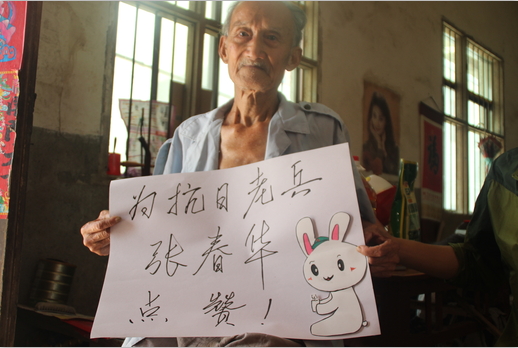 为抗日老兵
张春华
点赞！